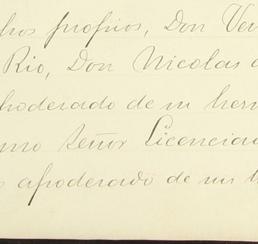 hos propios, Don Ven
Rio, Don Nicolas d
poderado de m herm
mo señor Licenciad
s apoderado de mi h